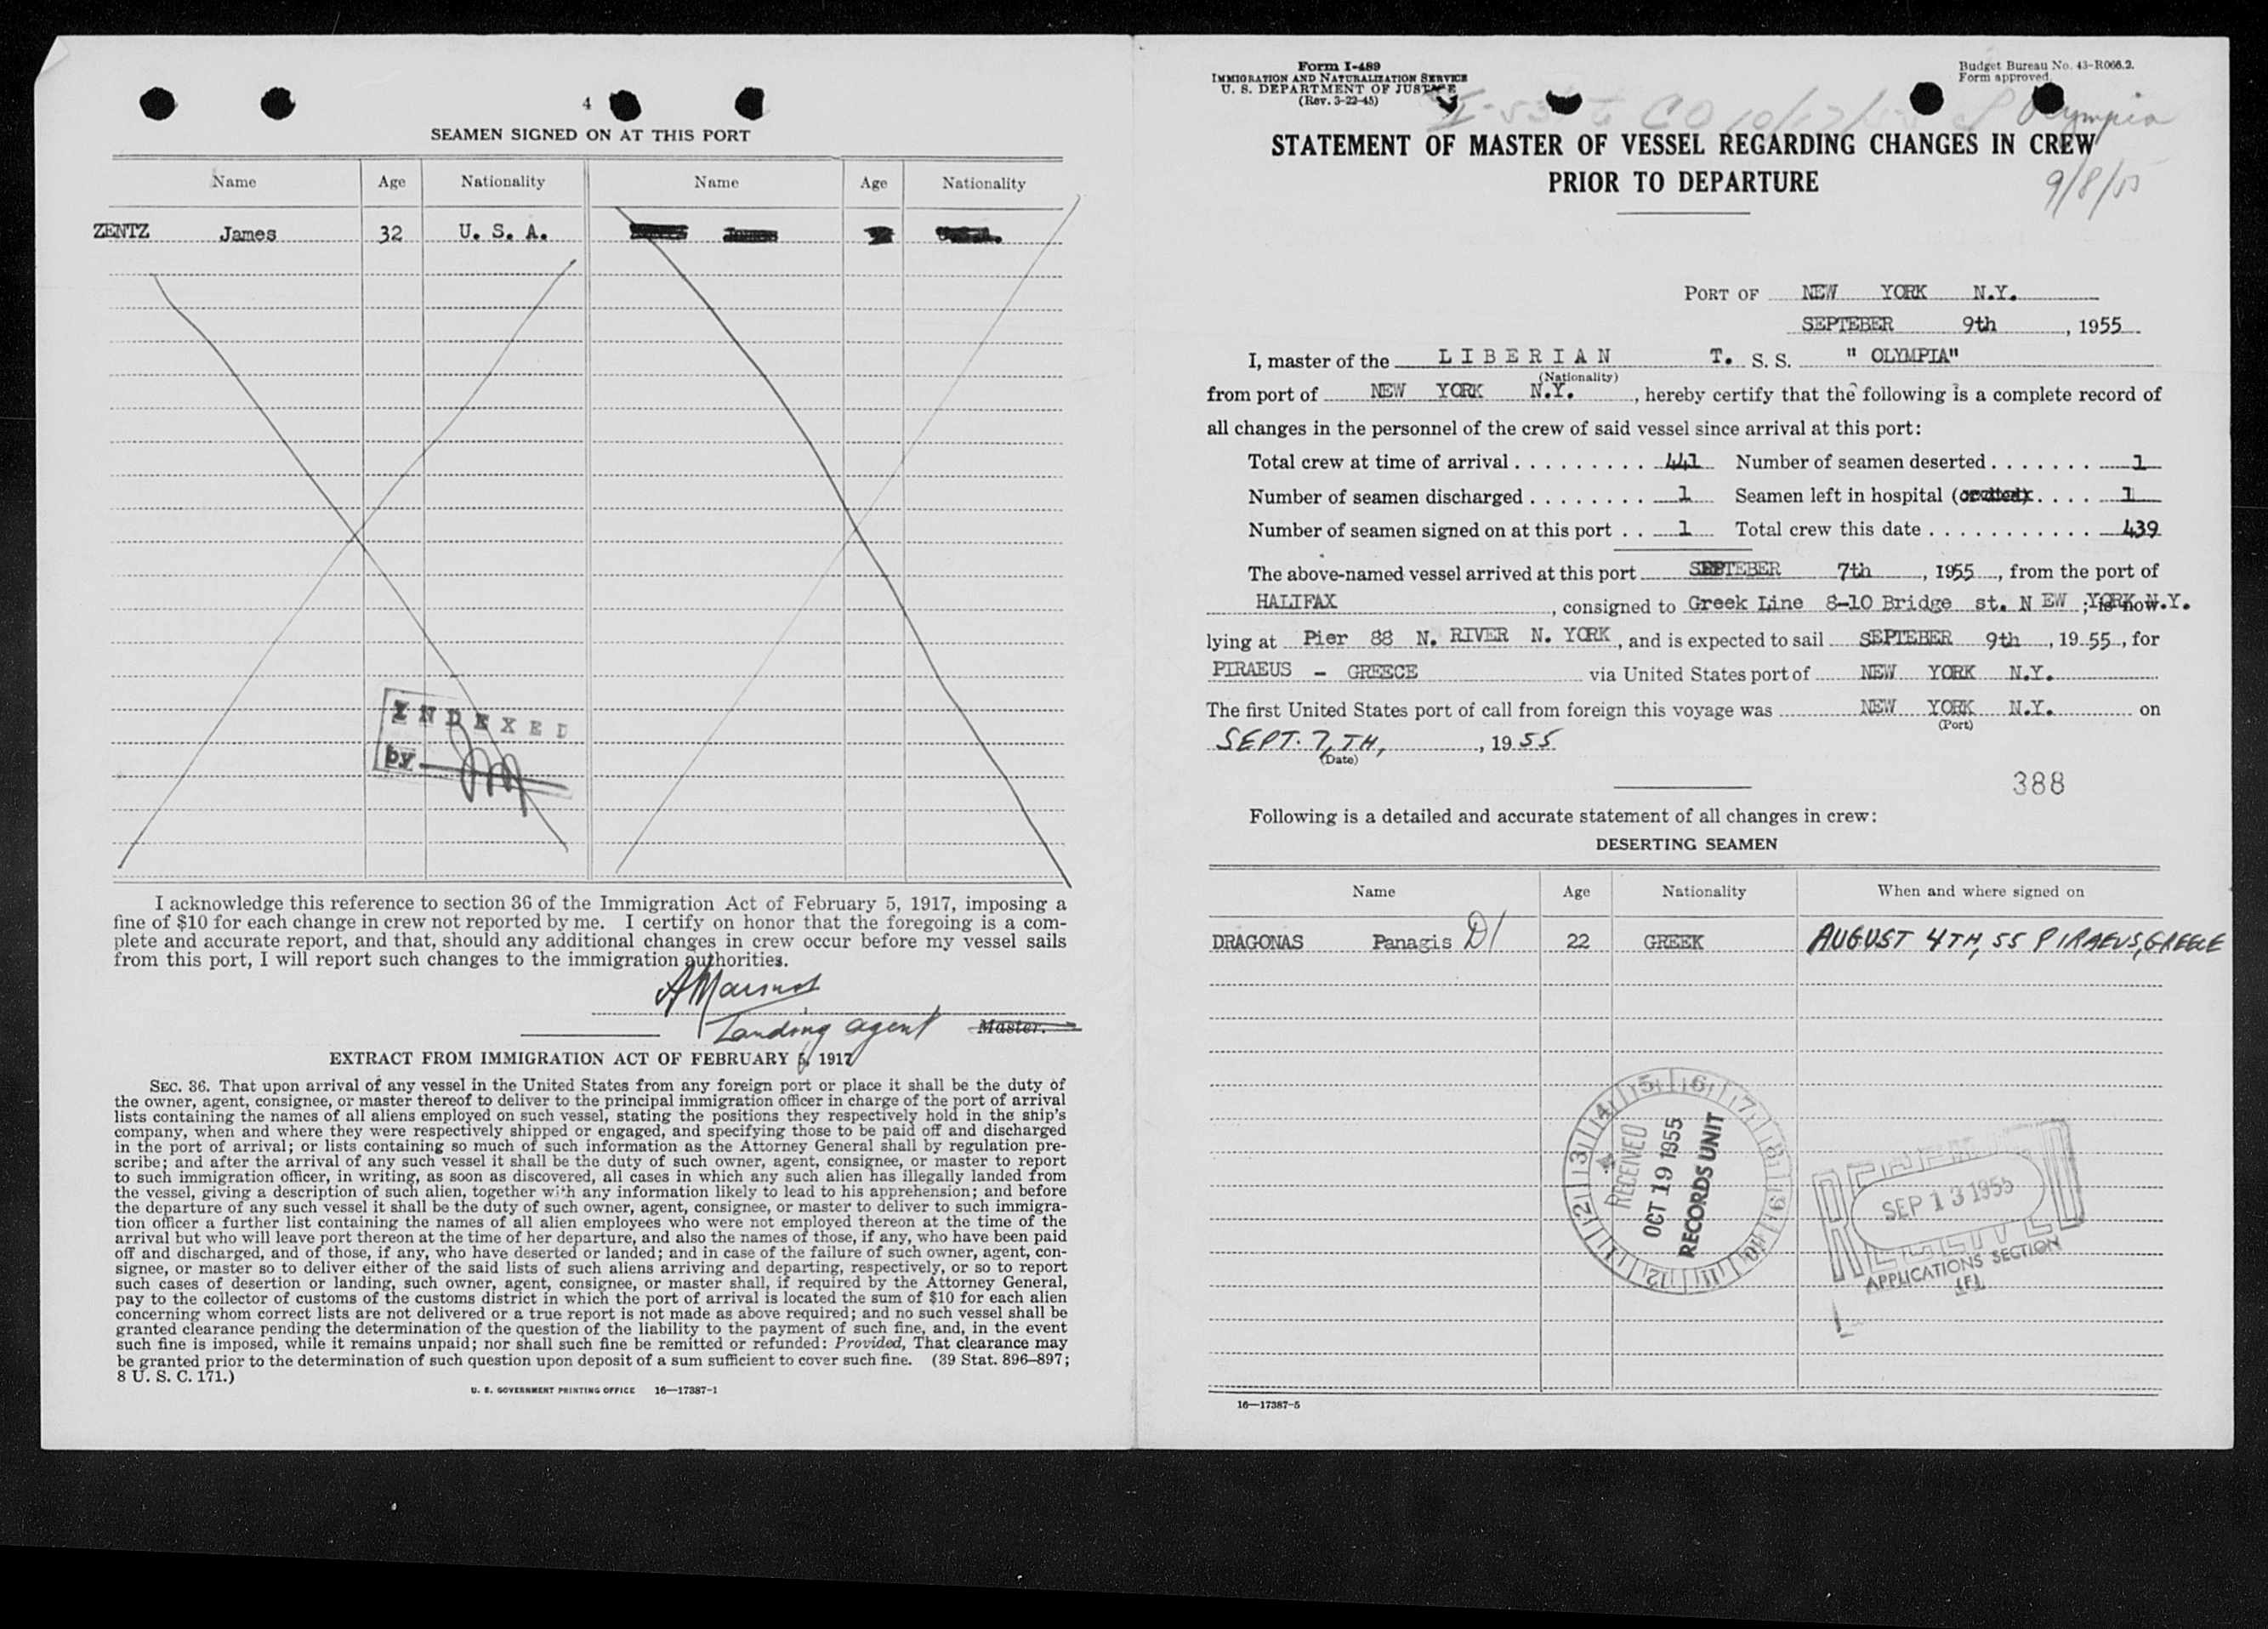 4
SEAMEN SIGNED ON AT THIS PORT
Name Age Nationality Name Age Nationality
ZENTZ James 32 U. S. A.
INDEXED
by
I acknowledge this reference to section 36 of the Immigration Act of February 5, 1917, imposing a
fine of $10 for each change in crew not reported by me. I certify on honor that the foregoing is a com-
plete and accurate report, and that, should any additional changes in crew occur before my vessel sails
from this port, I will report such changes to the immigration authorities.
Landing agent Master.
EXTRACT FROM IMMIGRATION ACT OF FEBRUARY 5, 1917
SEC. 36. That upon arrival of any vessel in the United States from any foreign port or place it shall be the duty of
the owner, agent, consignee, or master thereof to deliver to the principal immigration officer in charge of the port of arrival
lists containing the names of all aliens employed on such vessel, stating the positions they respectively hold in the ship's
company, when and where they were respectively shipped or engaged, and specifying those to be paid off and discharged
in the port of arrival; or lists containing so much of such information as the Attorney General shall by regulation pre-
scribe; and after the arrival of any such vessel it shall be the duty of such owner, agent, consignee, or master to report
to such immigration officer, in writing, as soon as discovered, all cases in which any such alien has illegally landed from
the vessel, giving a description of such alien, together with any information likely to lead to his apprehension; and before
the departure of any such vessel it shall be the duty of such owner, agent, consignee, or master to deliver to such immigra-
tion officer a further list containing the names of all alien employees who were not employed thereon at the time of the
arrival but who will leave port thereon at the time of her departure, and also the names of those, if any, who have been paid
off and discharged, and of those, if any, who have deserted or landed; and in case of the failure of such owner, agent, con-
signee, or master so to deliver either of the said lists of such aliens arriving and departing, respectively, or so to report
such cases of desertion or landing, such owner, agent, consignee, or master shall, if required by the Attorney General,
pay to the collector of customs of the customs district in which the port of arrival is located the sum of $10 for each alien
concerning whom correct lists are not delivered or a true report is not made as above required; and no such vessel shall be
granted clearance pending the determination of the question of the liability to the payment of such fine, and, in the event
such fine is imposed, while it remains unpaid; nor shall such fine be remitted or refunded: Provided, That clearance may
be granted prior to the determination of such question upon deposit of a sum sufficient to cover such fine. (39 Stat. 896–897;
8 U. S. C. 171.)
U. S. GOVERNMENT PRINTING OFFICE 16—17387-1
Form I-489
IMMIGRATION AND NATURALIZATION SERVICE
U. S. DEPARTMENT OF JUSTICE
(Rev. 3-22-45)
Budget Bureau No. 43-R066.2.
Form approved.
Olympia
9/8/55
STATEMENT OF MASTER OF VESSEL REGARDING CHANGES IN CREW
PRIOR TO DEPARTURE
PORT OF NEW YORK N.Y.
SEPTEBER 9th, 1955
I, master of the LIBERIAN T. S. S. " OLYMPIA"
(Nationality)
from port of NEW YORK N.Y., hereby certify that the following is a complete record of
all changes in the personnel of the crew of said vessel since arrival at this port:
Total crew at time of arrival . . . . . . . . . . 441 Number of seamen deserted . . . . . . . 1
Number of seamen discharged . . . . . . . . 1 Seamen left in hospital ( . . . . 1
Number of seamen signed on at this port . . 1 Total crew this date . . . . . . . . . . . 439
The above-named vessel arrived at this port SEPTEBER 7th, 1955, from the port of
HALIFAX, consigned to Greek Line 8-10 Bridge st. N EW YORK N.Y.; is now
lying at Pier 88 N. RIVER N. YORK, and is expected to sail SEPTEBER 9th, 1955, for
PIRAEUS - GREECE via United States port of NEW YORK N.Y.
The first United States port of call from foreign this voyage was NEW YORK N.Y. on
(Port)
SEPT. 7, TH, , 1955
(Date)
388
Following is a detailed and accurate statement of all changes in crew:
DESERTING SEAMEN
Name Age Nationality When and where signed on
DRAGONAS Panagis D1 22 GREEK AUGUST 4TH, 55 PIRAEUS, GREECE
RECEIVED
OCT 19 1955
RECORDS UNIT
SEP 13 1955
APPLICATIONS SECTION
16—17387-5